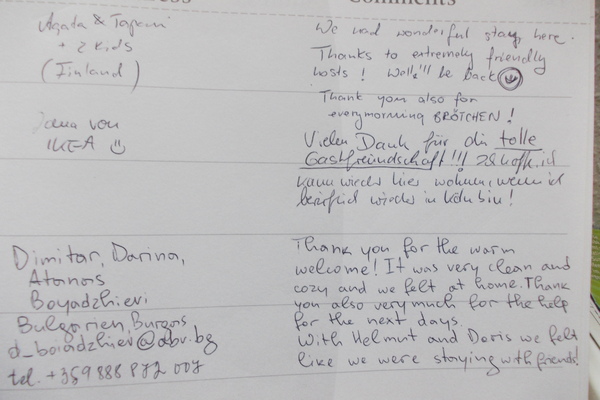 Comments
Agata & Tapani
+ 2 kids
(Finland)
We had wonderful stay here.
Thanks to extremely friendly
hosts! We'll be back
Thank you also for
everymorning BRÖTCHEN!
Jana von
IKEA
Vielen Dank für die tolle
Gastfreundschaft!!! Ich hoffe, ich
kann wieder hier wohnen, wenn ich
beruflich wieder in Köln bin!
Dimitar, Darina,
Atanas
Boyadzhievi
Bulgarien, Burgas
d_boiadzhiev@abv.bg
tel. +359 888 872 007
Thank you for the warm
welcome! It was very clean and
cozy and we felt at home. Thank
you also very much for the help
for the next days.
With Helmut and Doris we felt
like we were staying with friends!